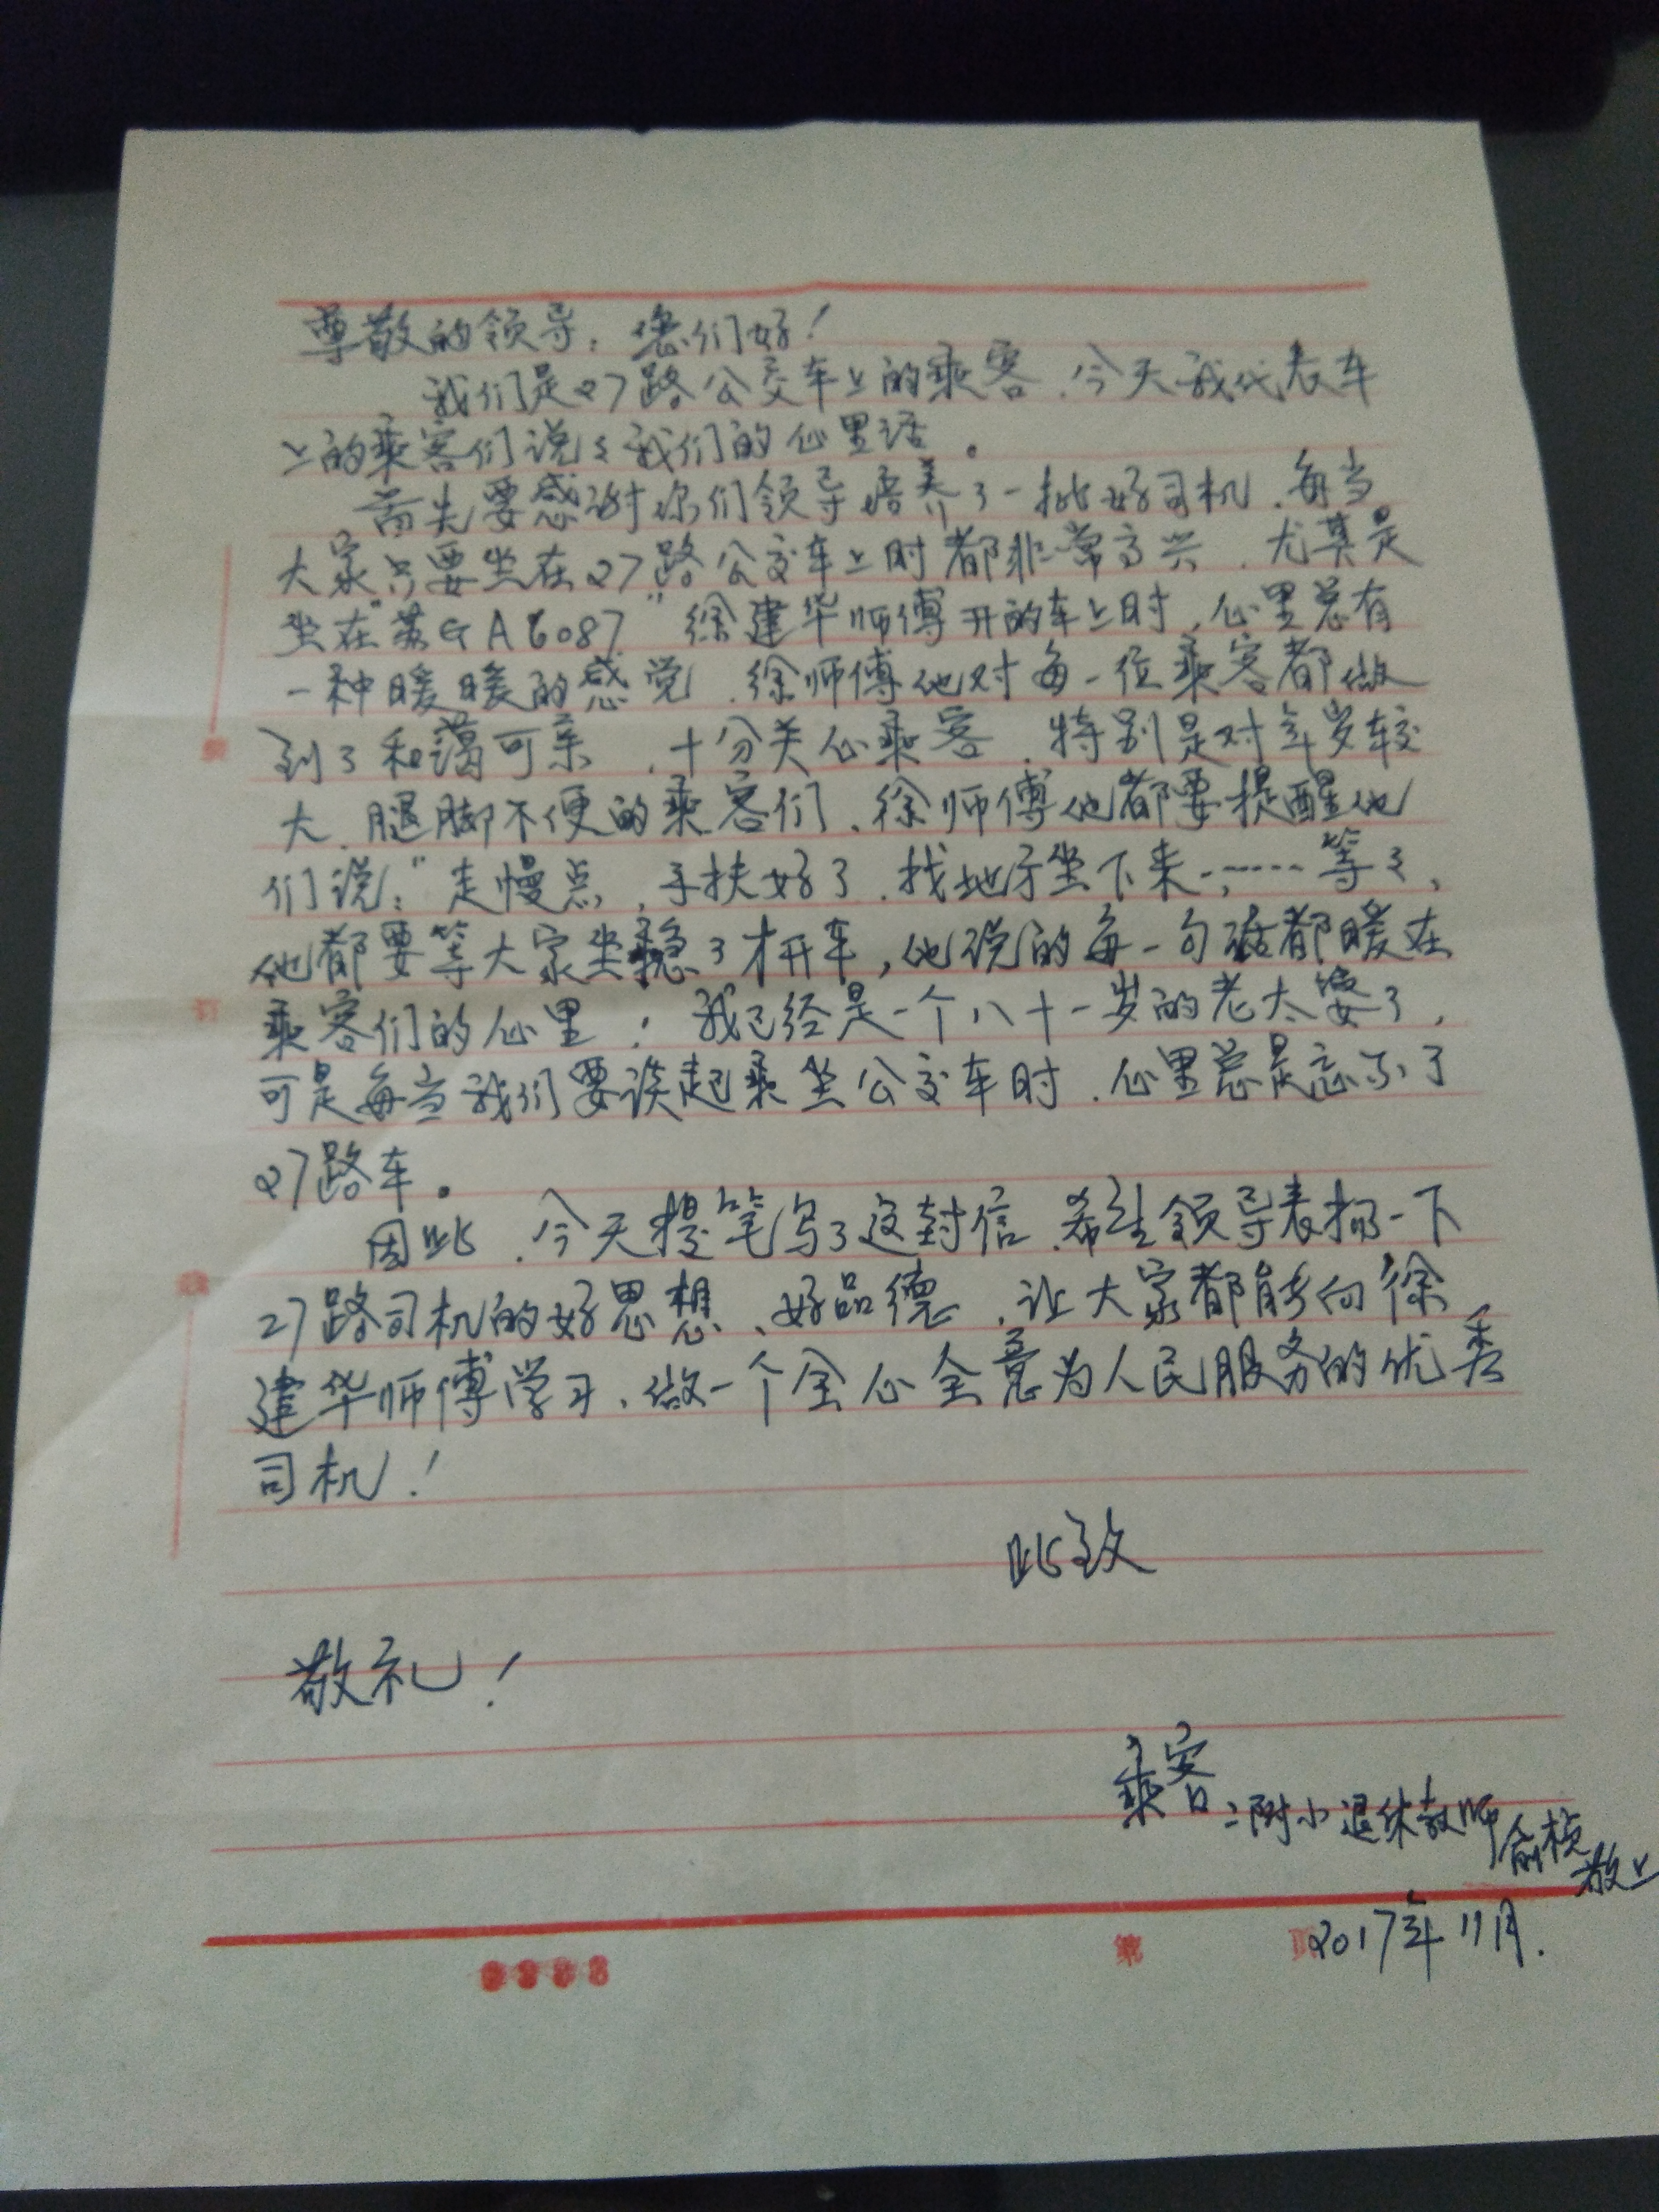 尊敬的领导：您们好！
我们是27路公交车上的乘客，今天我代表车
上的乘客们说々我们的心里话。
首先要感谢你们领导培养了一批好司机，每当
大家只要坐在27路公交车上时都非常高兴，尤其是
坐在“苏GA6087”徐建华师傅开的车上时，心里总有
一种暖暖的感觉，徐师傅他对每一位乘客都做
到了和蔼可亲，十分关心乘客，特别是对年岁较
大、腿脚不便的乘客们，徐师傅他都要提醒他
们说：“走慢点，手扶好了，找地方坐下来……等々，
他都要等大家坐稳了才开车，他说的每一句话都暖在
乘客们的心里！我已经是一个八十一岁的老太婆了，
可是每当我们要谈起乘坐公交车时，心里总是忘不了
27路车。
因此，今天提笔写了这封信，希望领导表扬一下
27路司机的好思想、好品德，让大家都能向徐
建华师傅学习，做一个全心全意为人民服务的优秀
司机！
此致
敬礼！
乘客：附小退休教师俞桢
敬上
2017年11月.
第 页